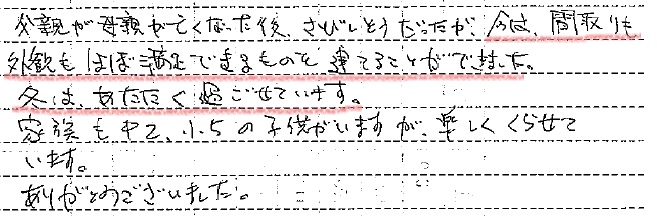 父親が母親が亡くなった後、さびしそうだったが、今は、間取りも
外観もほぼ満足できるものを建てることができました。
冬は、あたたく過ごせています。
家族も中2、小5の子供がいますが、楽しくくらせて
います。
ありがとうございました。